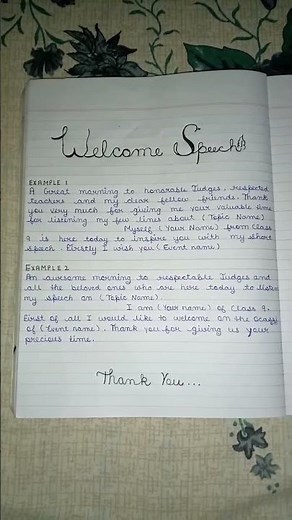 Welcome Speech
EXAMPLE 1
A Great morning to honorable Judges, respected
teachers and my dear fellow friends. Thank
you very much for giving me your valuable time
for listening my few lines about (Topic Name)
Myself (Your Name) from Class
9 is here today to inspire you with my short
speech. Firstly I wish you (Event name)
EXAMPLE 2
An awesome morning to respectable Judges and
all the beloved ones who are here today to listen
my speech on (Topic Name)
I am (Your name) of Class 9.
First of all I would like to welcome on the
of (Event name). Thank you for giving us your
precious time.
Thank You...